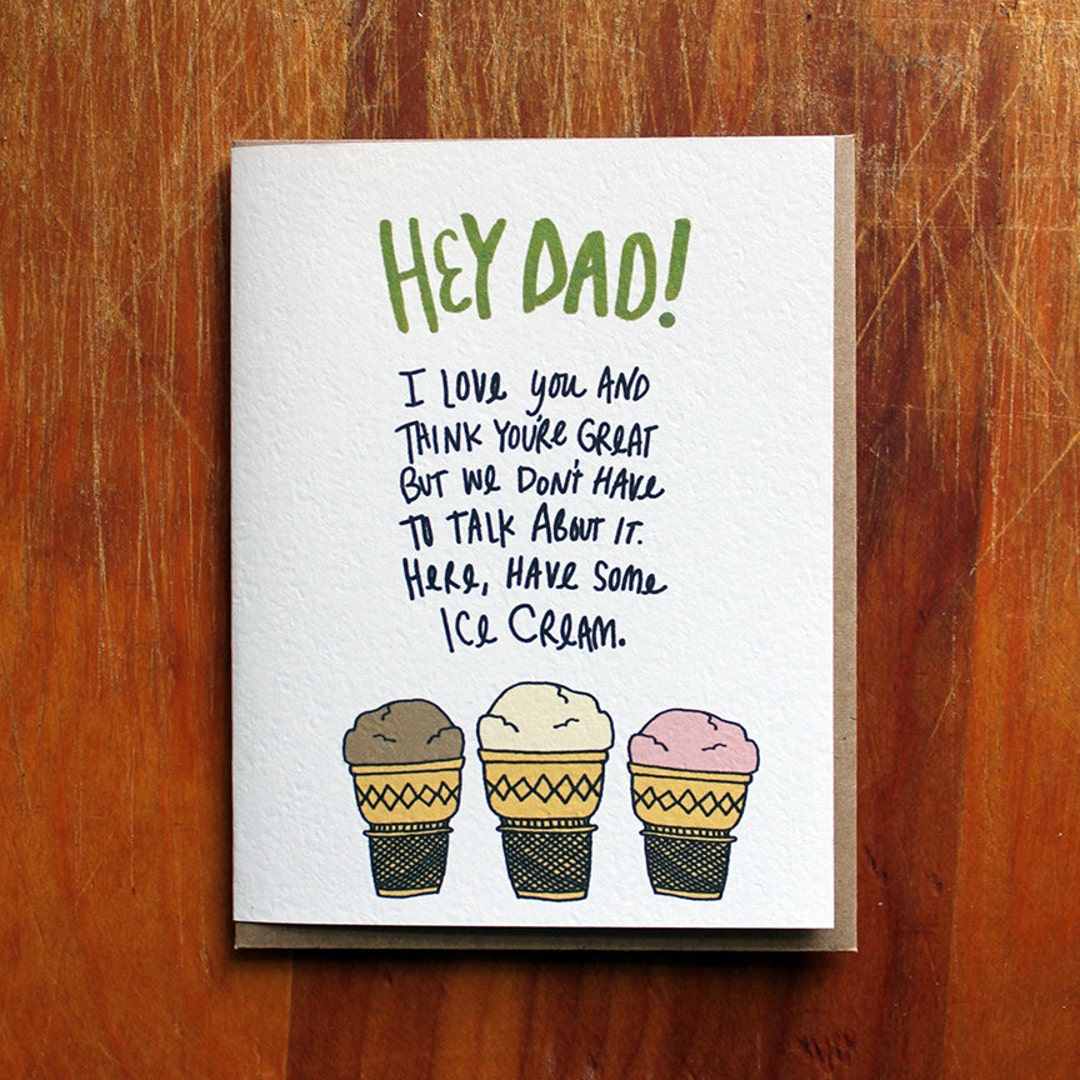 HEY DAD!
I LOVE YOU AND
THINK YOU'RE GREAT
BUT WE DON'T HAVE
TO TALK ABOUT IT.
HERE, HAVE SOME
ICE CREAM.